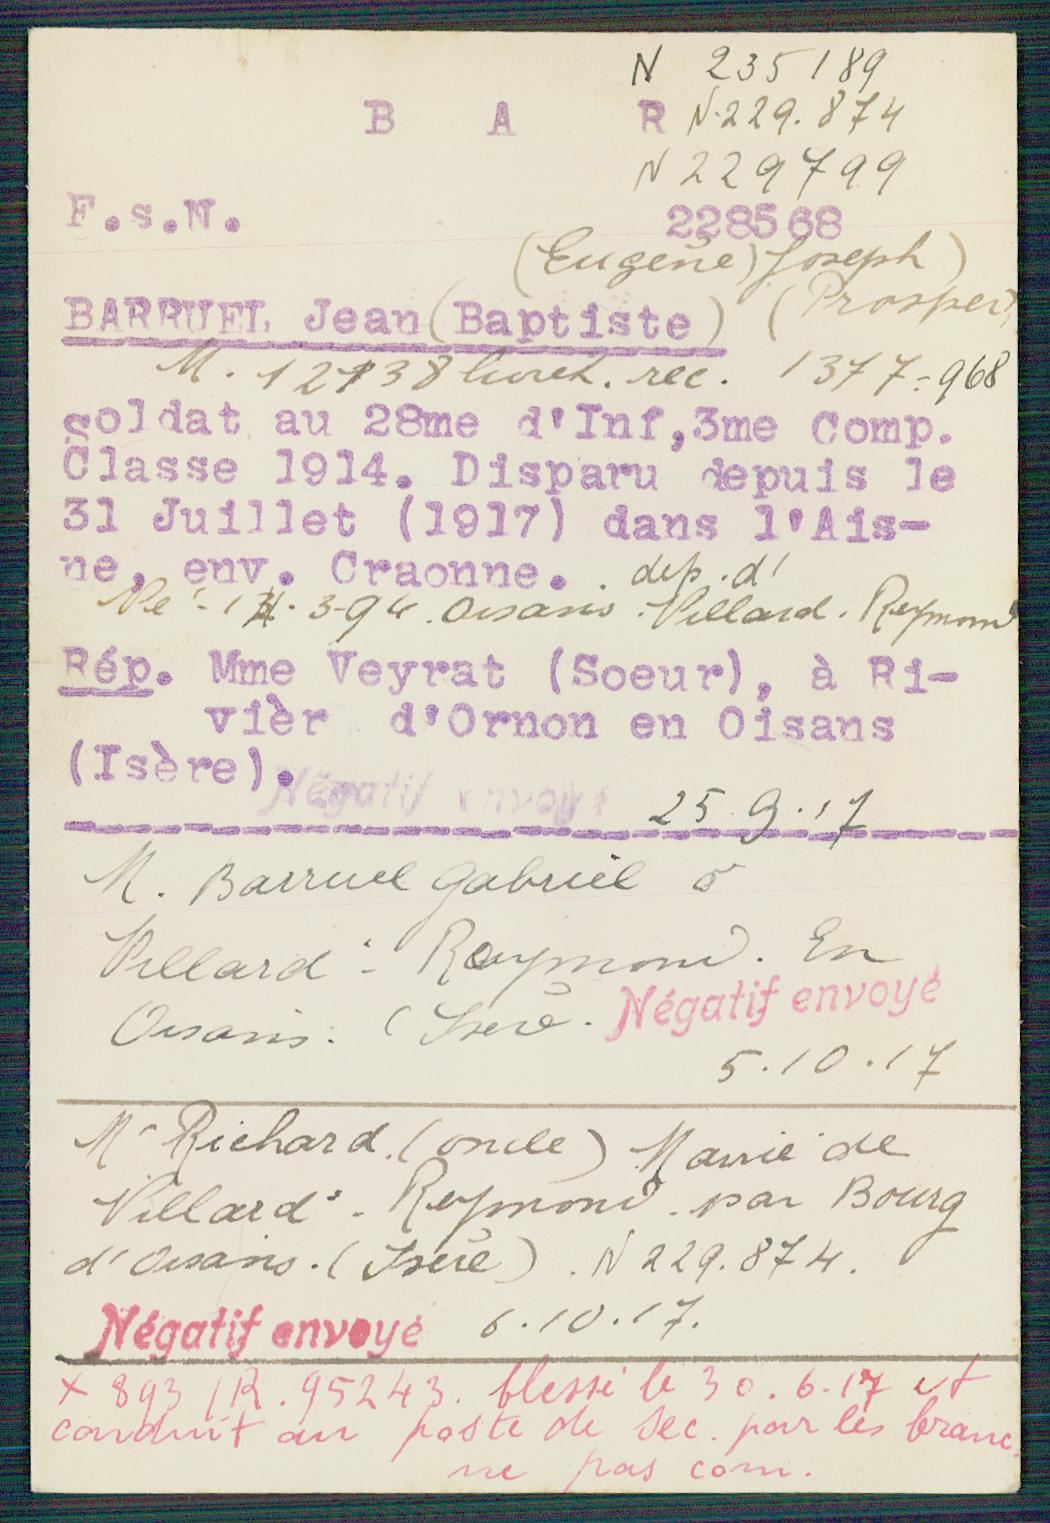 N 235189
B A R N.229.874
N 229799
F.s.N. 228568
(Eugène) Joseph)
BARRUEL Jean (Baptiste) (Prosper)
M. 12138 livret. rec. 1377=968
soldat au 28me d'Inf,3me Comp.
Classe 1914. Disparu depuis le
31 Juillet (1917) dans l'Ais-
ne, env. Craonne. . dep. d'
Né - 14. 3-94. Oisans. Villard. Reymond
Rép. Mme Veyrat (Soeur), à Ri-
vièr d'Ornon en Oisans
(Isère).
Négatif envoyé 25.9.17
M. Barruel Gabriel à
Villard - Raymond. En
Oisans. (Isère.
Négatif envoyé
5.10.17
Mr Richard. (oncle) Mairie de
Villard - Reymond. par Bourg
d'Oisans. (Isère). N 229.874.
Négatif envoyé 6.10.17.
+ 893 /R. 95243. blessé le 30.6.17 et
conduit au poste de sec. par les branc.
ne pas com.